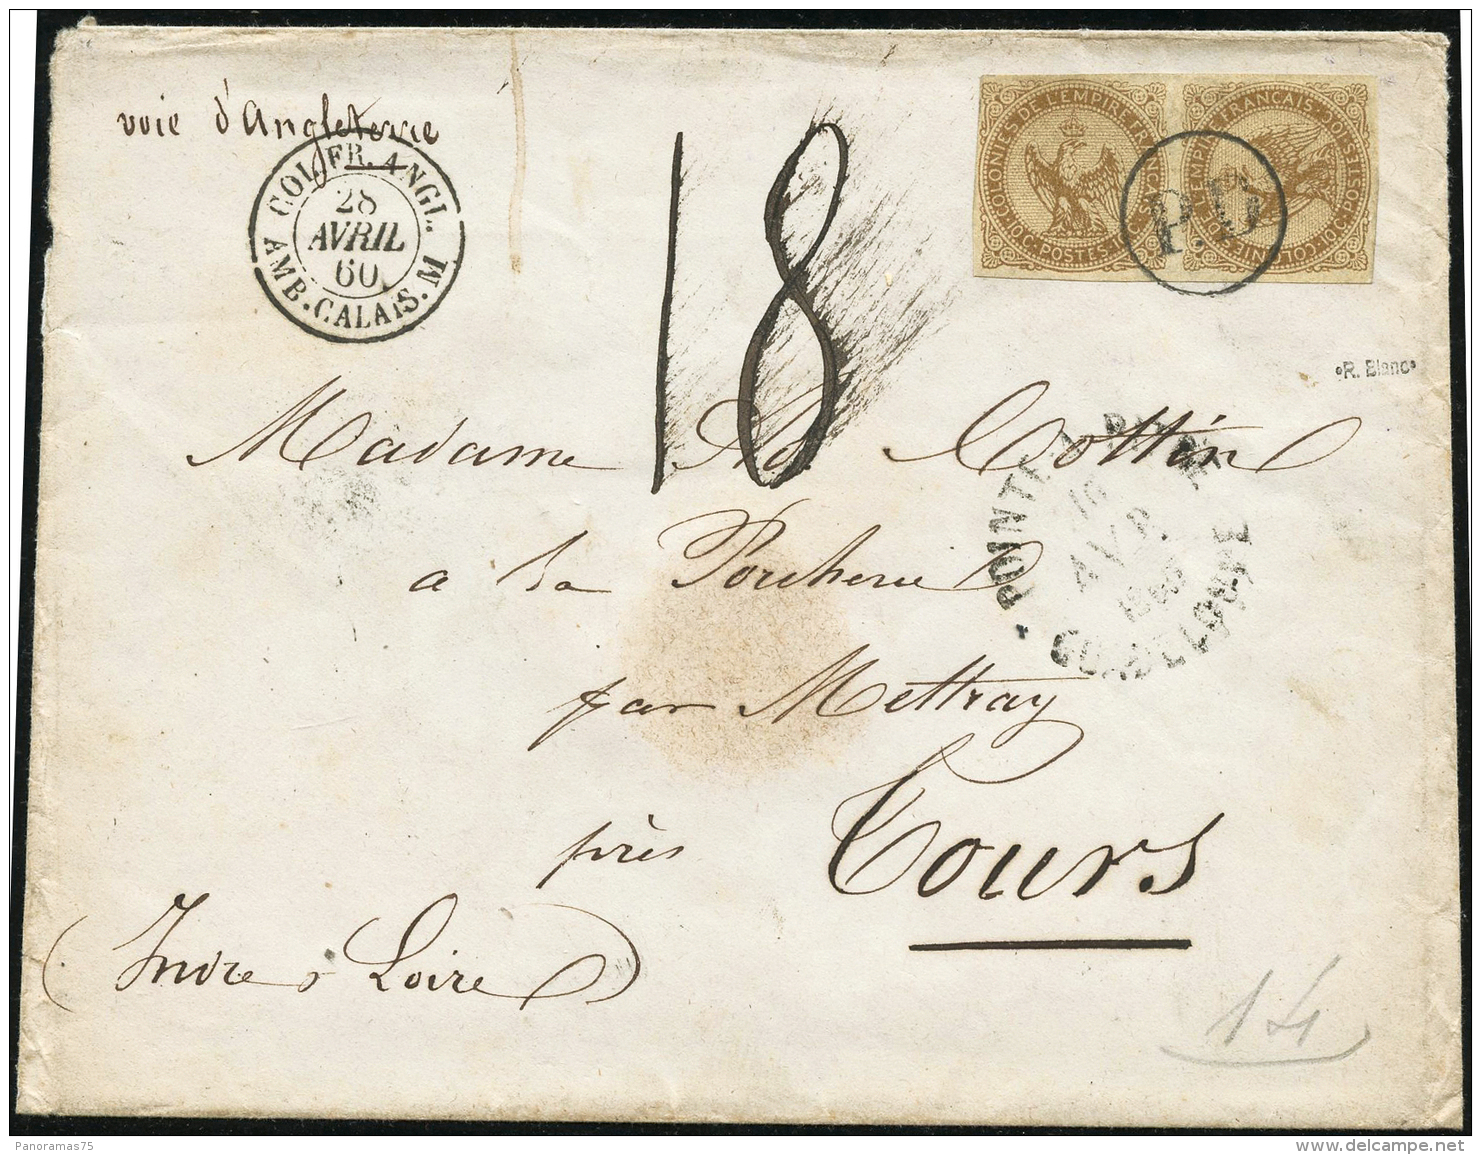 voie d'Angleterre
COL. FR. ANGL.
28
AVRIL
60
AMB. CALAIS. M
18
COLONIES DE L'EMPIRE FRANÇAIS
10C POSTES 10C
P.D
COLONIES DE L'EMPIRE FRANÇAIS
10C POSTES 10C
R. Blanc
Madame Ad. Cottin
POINTE A PITRE
16
AVR
1860
GUADELOUPE
a la Porcherie
par Mettray
près Tours
(Indre & Loire)
14
Panoramas75
delcampe.net